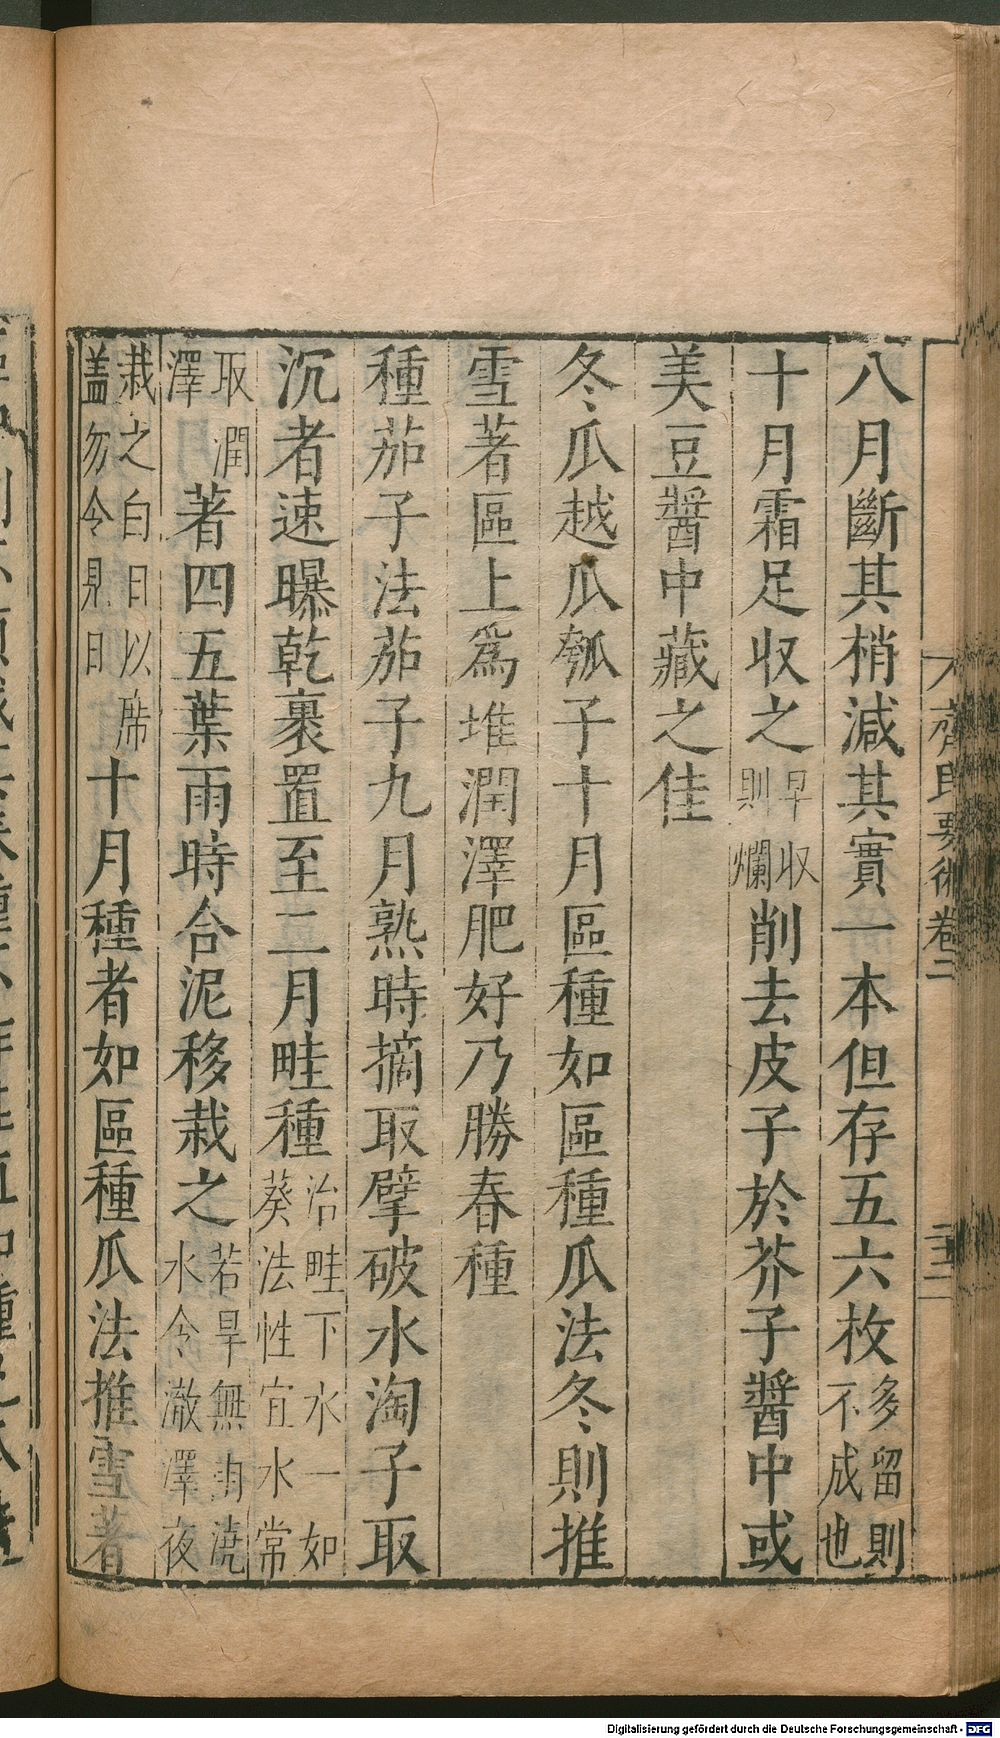 八月斷其梢減其實一本但存五六枚多留則不成也
十月霜足收之早收則爛削去皮子於芥子醬中或
美豆醬中藏之佳
冬瓜越瓜瓠子十月區種如區種瓜法冬則推
雪著區上爲堆潤澤肥好乃勝春種
種茄子法茄子九月熟時摘取擘破水淘子取
沉者速曝乾裹置至二月畦種治畦下水一如葵法性宜水常
取潤澤著四五葉雨時合泥移栽之若旱無雨澆水令澈澤夜
栽之白日以席盖勿令見日十月種者如區種瓜法推雪著
齊民要術卷二
Digitalisierung gefördert durch die Deutsche Forschungsgemeinschaft - DFG